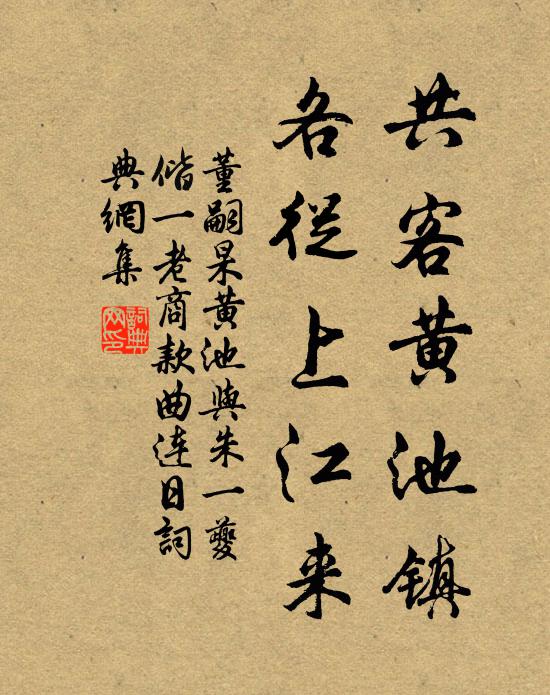 共客黄池镇
各從上江来
董嗣杲黄池與朱一夔
偕一老商款曲连日詞
典網集
詞典网印